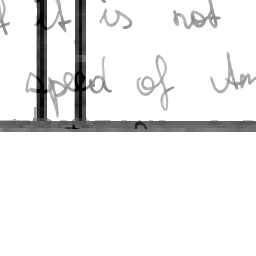 it is not
speed of